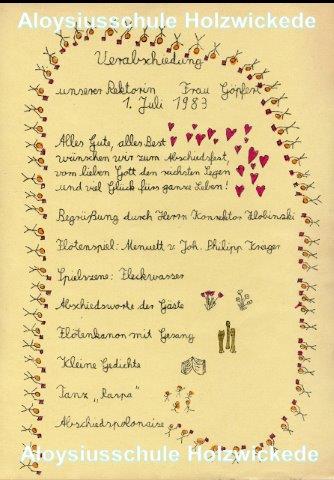 Aloysiusschule Holzwickede
Verabschiedung
unserer Rektorin Frau Göpfert
1. Juli 1983
Alles Gute, alles Best
wünschen wir zum Abschiedsfest,
vom lieben Gott den reichsten Segen
und viel Glück fürs ganze Leben!
Begrüßung durch Herrn Konrektor Klobinski
Flötenspiel: Menuett v. Joh. Philipp Krieger
Spielszene: Fleckwasser
Abschiedsworte der Gäste
Flötenkanon mit Gesang
Kleine Gedichte
Tanz "Raspa"
Abschiedspolonaise
Aloysiusschule Holzwickede